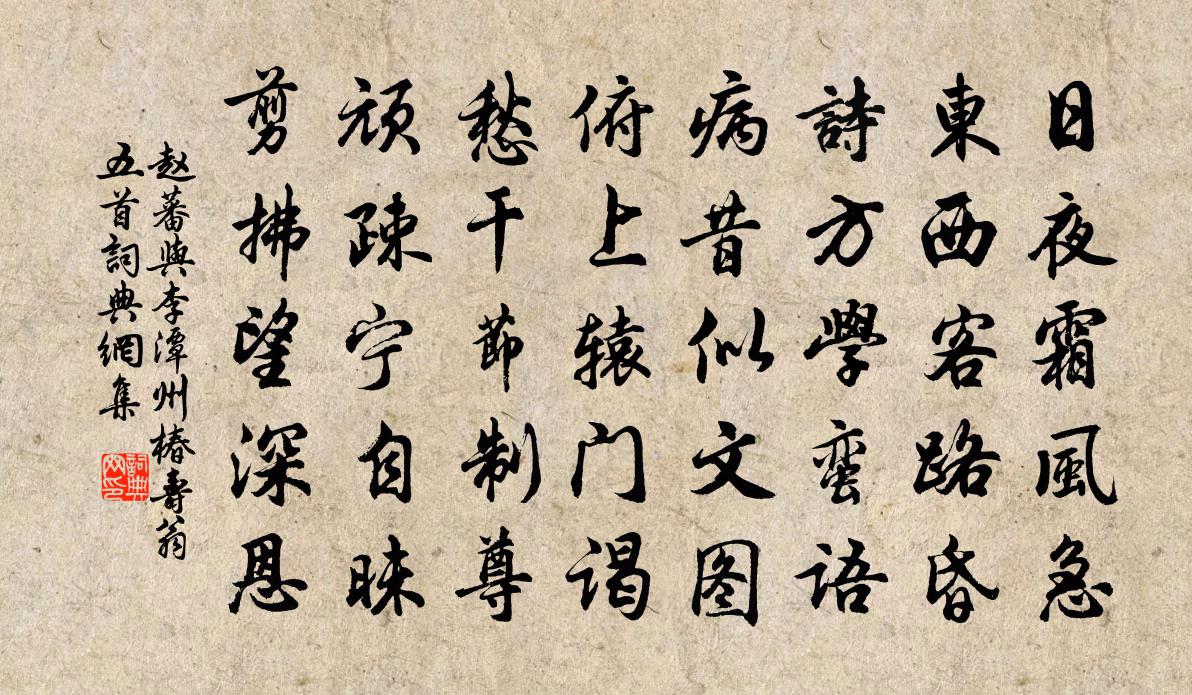 日夜霜風急
東西客路昏
詩方學蛮语
病昔似文图
俯上辕门谒
愁干節制尊
頑疎宁自眛
剪拂望深恩
赵蕃與李潭州椿壽翁
五首詞典網集
詞典网印